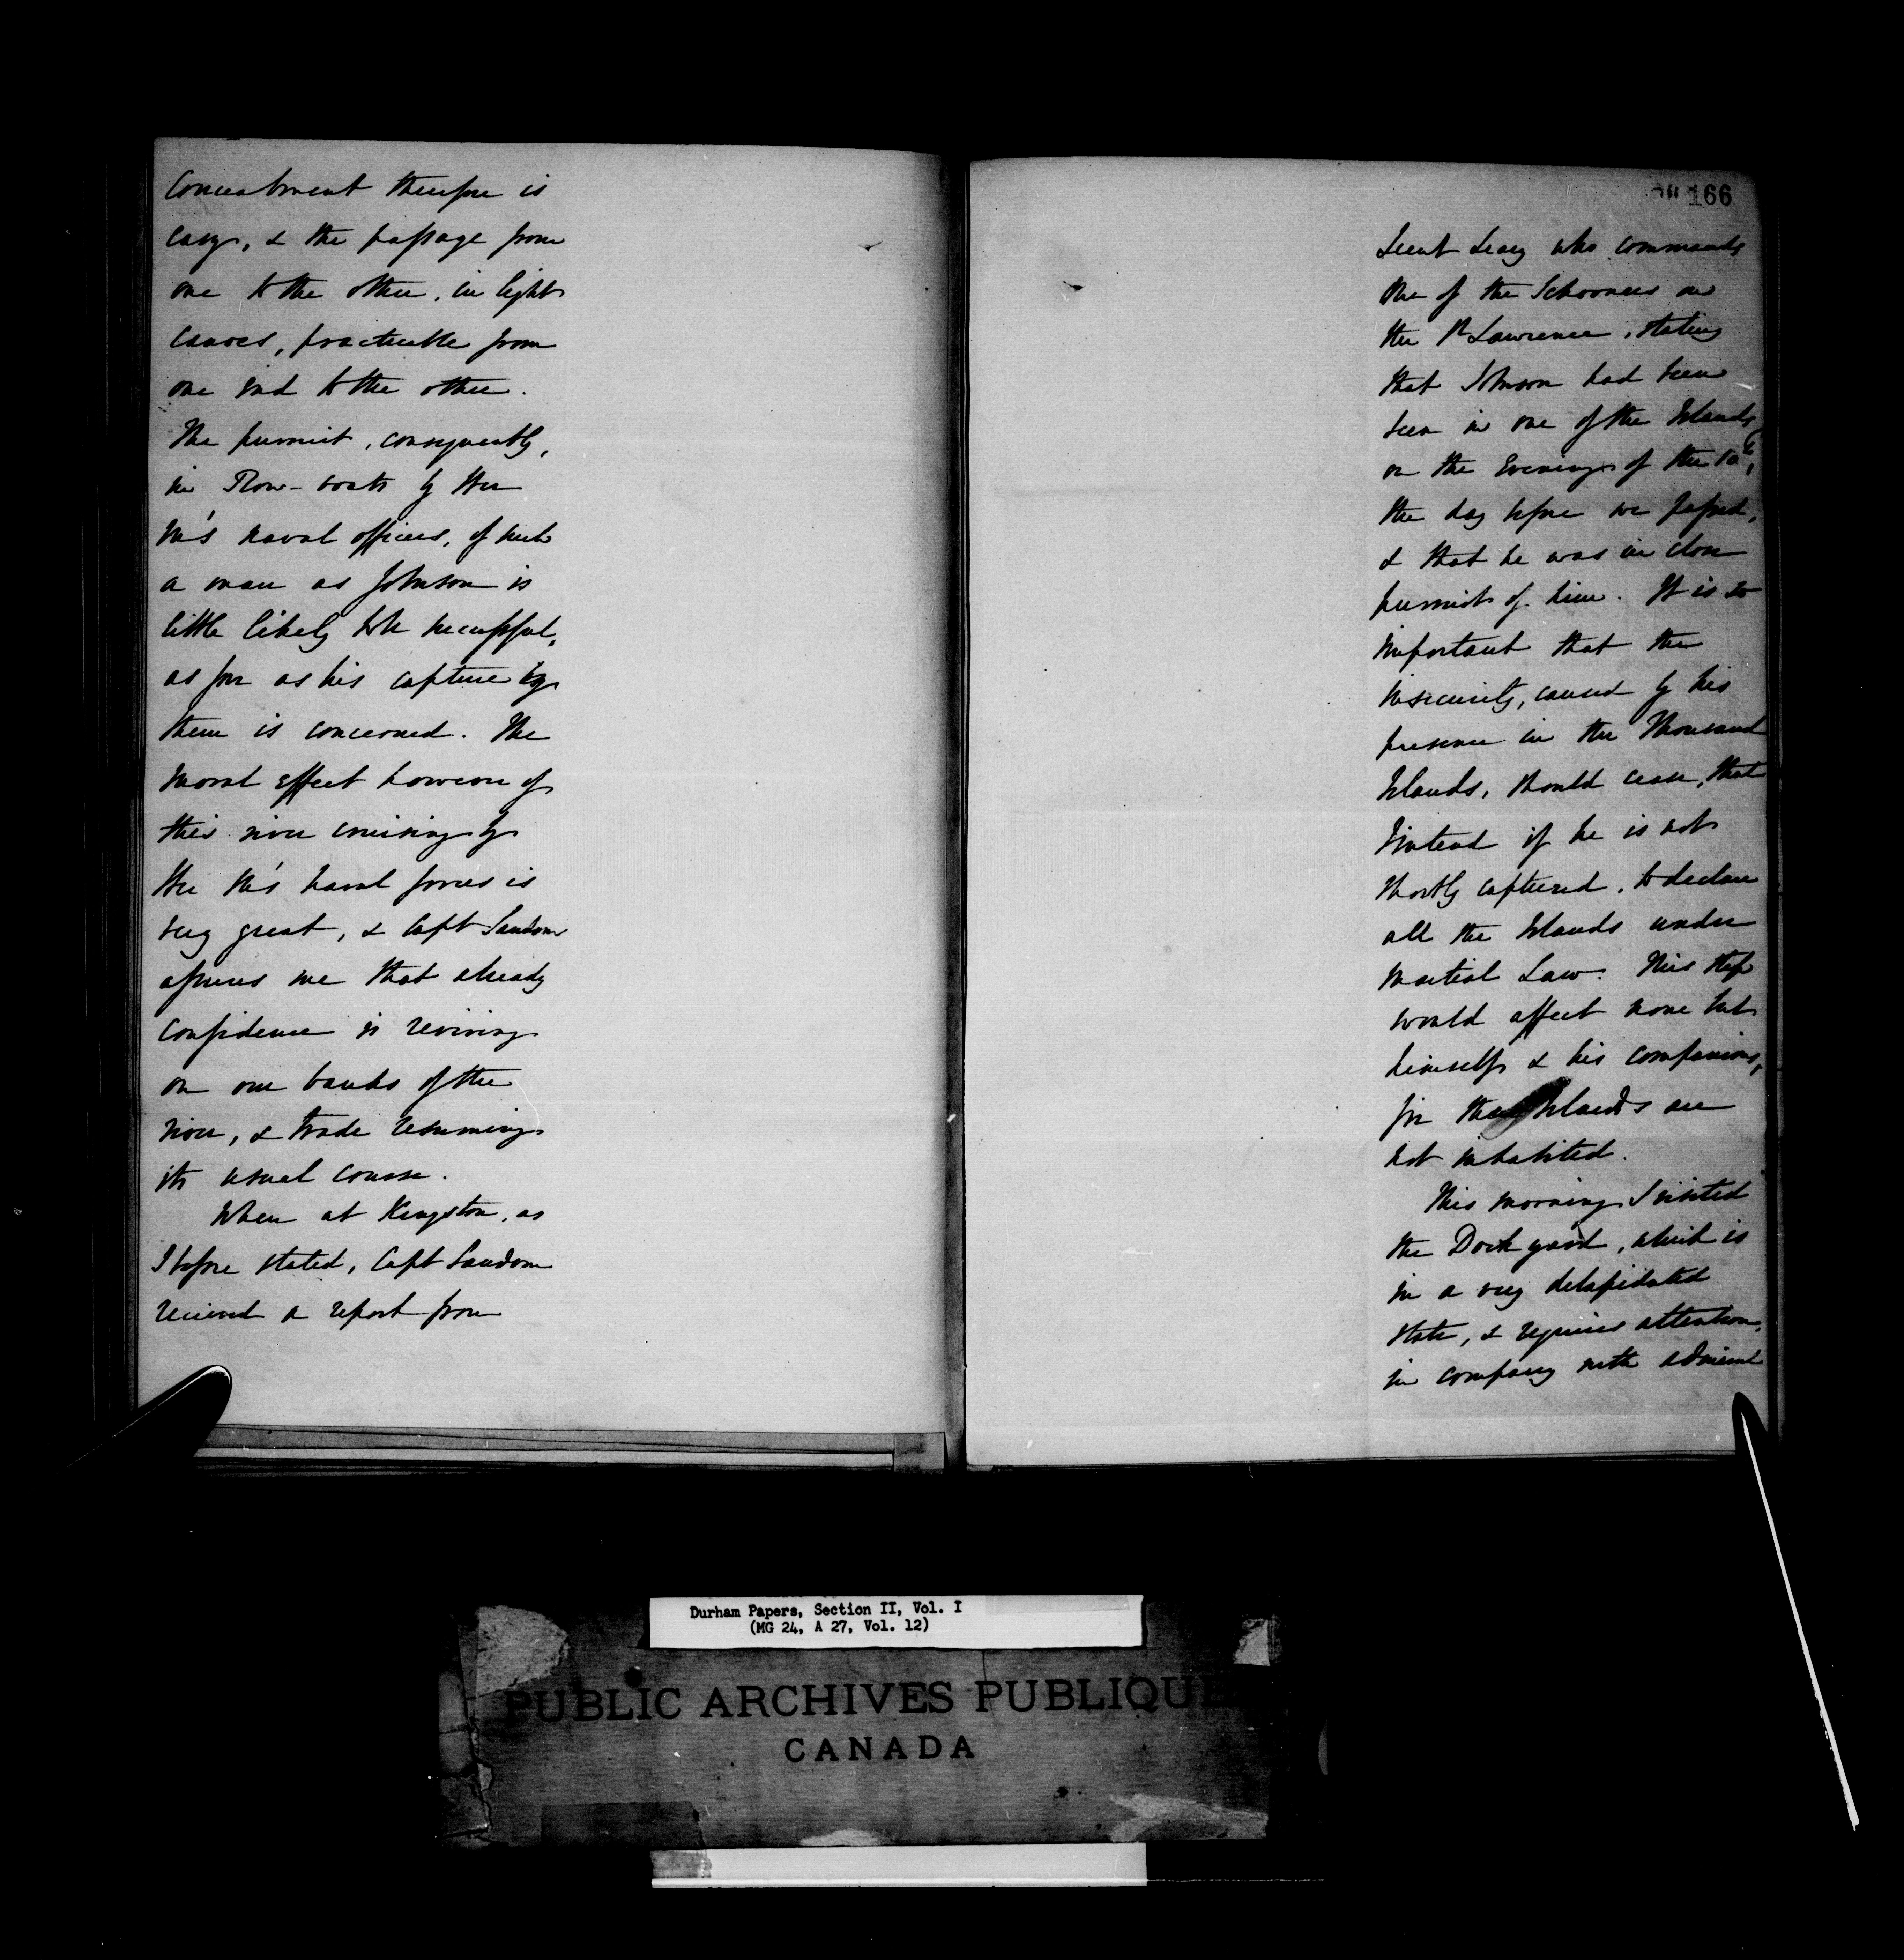 Concealment therefore is
easy, & the passage from
one to the other, in light
canoes, practicable from
one end to the other.
The pursuit, consequently,
in Row-boats by Her
M's naval officers, of such
a man as Johnson is
little likely to be successful,
as far as his capture by
them is concerned. The
moral effect however of
this river cruising by
Her M's naval forces is
very great, & Capt Sandom
assures me that already
confidence is reviving
on our banks of the
river, & trade resuming
its usual course.
When at Kingston, as
I before stated, Capt Sandom
received a report from
166
Lieut Leary who commands
one of the Schooners on
the St Lawrence, stating
that Johnson had been
seen in one of the Islands
on the Evening of the 10th,
the day before we passed,
& that he was in close
pursuit of him. It is so
important that the
insecurity, caused by his
presence in the Thousand
Islands, should cease, that
I intend if he is not
shortly captured, to declare
all the Islands under
Martial Law. This step
would affect none but
himself & his companions,
for the Islands are
not inhabited.
This morning I visited
the Dock yard, which is
in a very delapidated
state, & requires attention,
in company with Admiral
Durham Papers, Section II, Vol. I
(MG 24, A 27, Vol. 12)
PUBLIC ARCHIVES PUBLIQUE
CANADA